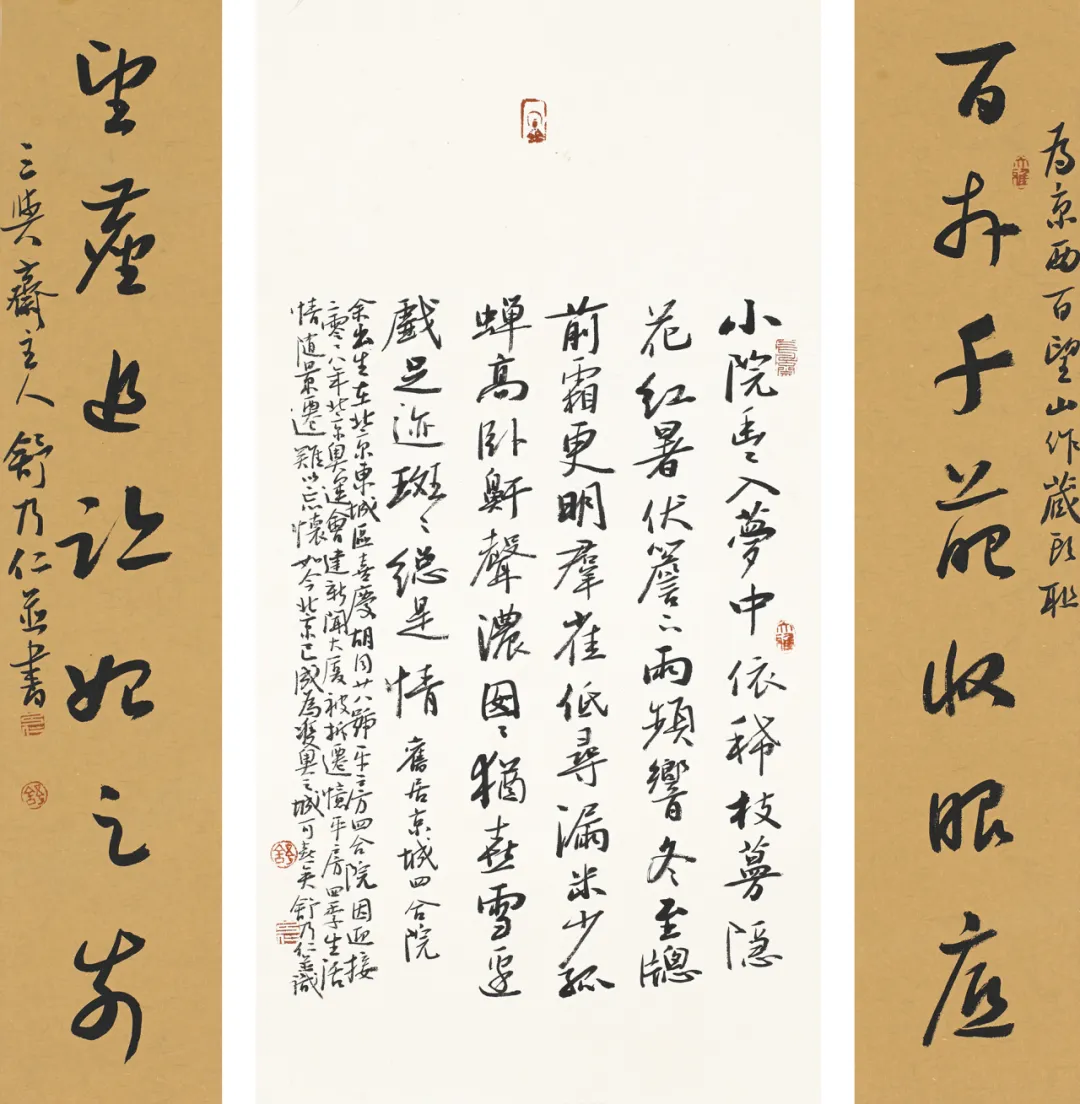 為京西百望山作蔵頭联
百卉千葩收眼底
小院重々入夢中依稀枝蔓隱
花紅暑伏簷下雨頻響冬至牕
前霜更明羣雀低尋漏米少孤
蟬高卧鼾聲濃囡々猶喜雪逐
戲足迹斑々總是情 舊居京城四合院
余出生在北京東城區喜慶胡同廿八號平房四合院因迎接
二零八年北京奧運會建新聞大廈被拆遷憶平房四季生活
情随景遷難以忘懷如今北京已成為雙奧之城可喜矣舒乃仁並識
望塵追始之前
三與齋主人舒乃仁並書